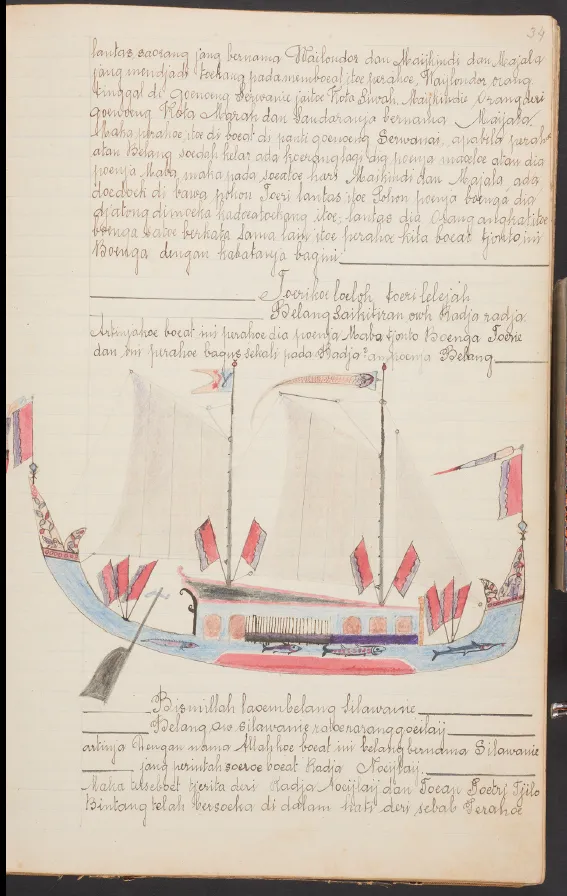 34
lantas saorang jang bernama Waijloudor dan Maijkindi dan Majala
jang mendjadi toekang pada memboeat itoe perahoe, Waijloudor orang
tinggal di goenoeng Serwanie jaitoe Kota Siwah, Maijkindie orang deri
goenoeng Kota Marah dan Saudaranja bernama Maijala,
Maka perahoe itoe di boeat di panti goenoeng Serwanai, apabila perahoe
atau Belang soedah kelar ada koerang lagi dia poenja
poenja Maba, maka pada soeatoe hari Maijkindi dan Majala ada
doedoek di bawa pohon Toeri lantas itoe Pohon poenja boenga dia
djatong di moeka kadoea toekang itoe, lantas dia Orang angkat itoe
boenga satoe berkata sama lain itoe perahoe kita boeat tjonto ini
Boenga dengan kabatanja bagini
Toerikoe loeloh, toeri lelejah
Belang Saikitiran owh Radja radja.
Artinja koe boeat ini perahoe dia poenja Maba tjonto Boenga Toerie
dan ini perahoe bagus sekali pada Radja² ampoenja Belang
Bismillah laoembelang Silawanie
Belang ow silawanie ratoenarang goeilaij
artinja Dengan nama Allah koe boeat ini belang bernama Silawanie
jang perintah soeroe boeat Radja Noeijlaij.
Maka tersebbet tjerita deri Radja Noeijlaij dan Toean Poetri Tjilo
Bintang telah bersoeka di dalam hati deri sebab Perahoe